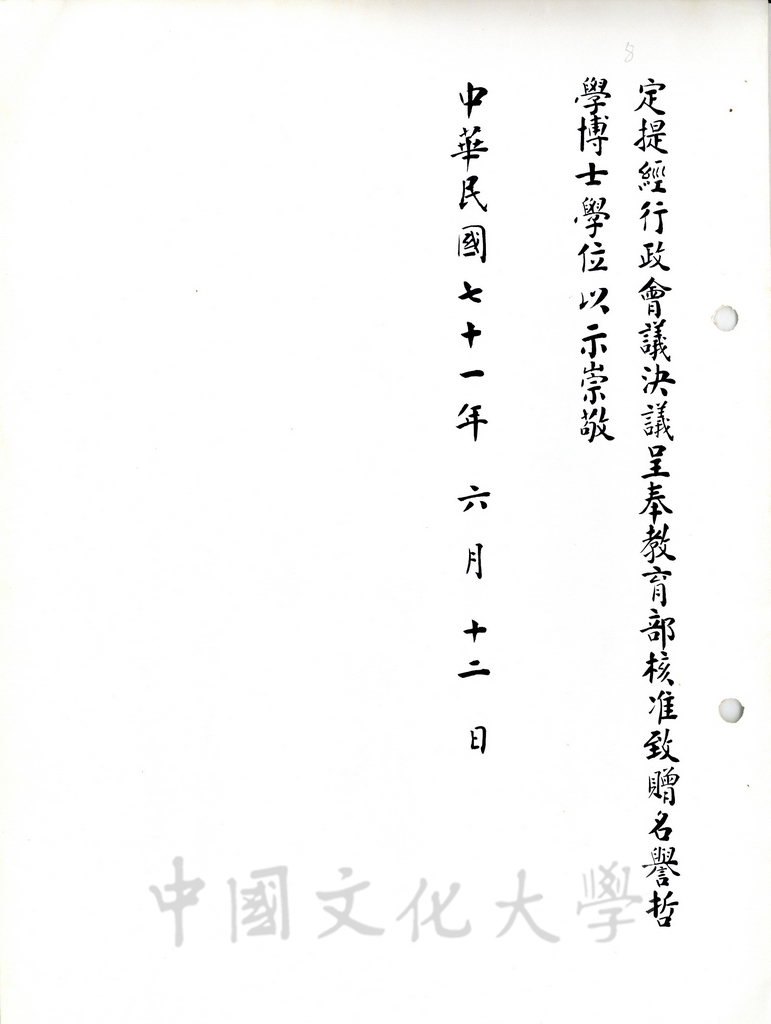 8
定提經行政會議決議呈奉教育部核准致贈名譽哲
學博士學位以示崇敬
中華民國七十一年 六 月 十二 日
中國文化大學